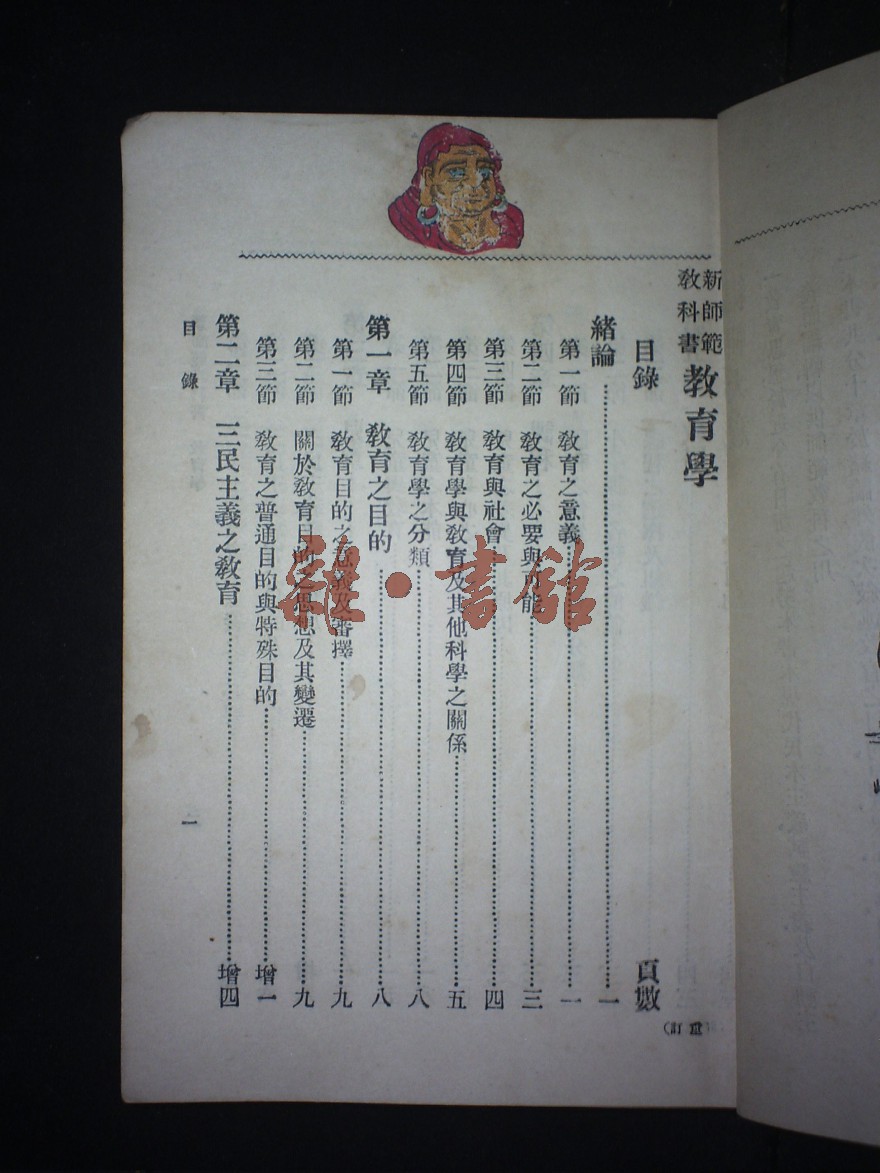 新師範教科書 教育學
目錄 頁數
(訂重)
緒論 一
第一節 教育之意義 一
第二節 教育之必要與可能 三
第三節 教育與社會 四
第四節 教育學與教育及其他科學之關係 五
第五節 教育學之分類 八
第一章 教育之目的 八
第一節 教育目的之意義及審擇 九
第二節 關於教育目的之思想及其變遷 九
第三節 教育之普通目的與特殊目的 增一
第二章 三民主義之教育 增四
目錄 一
雜·書館